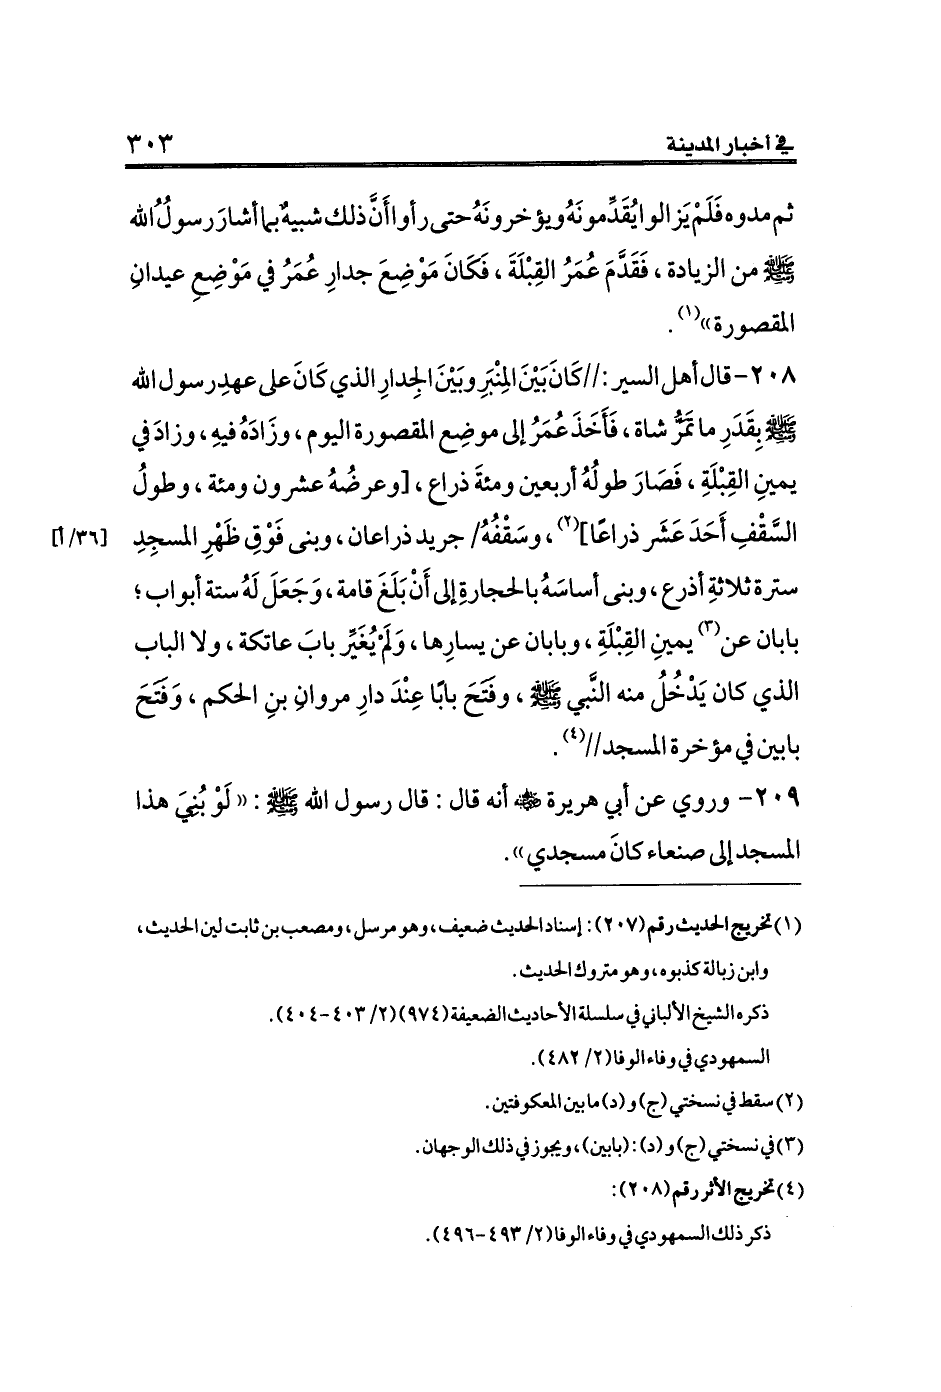 في أخبار المدينة ٣٠٣
ثم مدوه فَلَمْ يَزالوا يُقَدِّمونَهُ ويؤخرونَهُ حتى رأوا أَنَّ ذلك شبيهٌ بما أشارَ رسولُ الله
ﷺ من الزيادة ، فَقَدَّمَ عُمَرُ القِبْلَةَ ، فَكَانَ مَوْضِعَ جدارِ عُمَرُ في مَوْضِعِ عيدانِ
المقصورة»(١) .
٢٠٨- قال أهل السير : //كَانَ بَيْنَ المِنْبَرِ وبَيْنَ الجِدارِ الذي كَانَ على عهدِ رسول الله
ﷺ بِقَدَرِ ما تَمُرُّ شاة ، فَأَخَذَ عُمَرُ إلى موضِع المقصورة اليوم ، وزَادَهُ فيهِ ، وزادَ في
يمينِ القِبْلَةِ ، فَصَارَ طولُهُ أربعين ومئةَ ذراع ، [وعرضُهُ عشرون ومئة ، وطولُ
السَّقْفِ أَحَدَ عَشَر ذراعًا](٢) ، وسَقْفُهُ/ جريد ذراعان ، وبنى فَوْقِ ظَهْرِ المسجِدِ [٣٦/أ]
سترة ثلاثةِ أذرع ، وبنى أساسَهُ بالحجارةِ إلى أَنْ بَلَغَ قامة ، وَجَعَلَ لَهُ ستة أبواب ؛
بابان عن(٣) يمينِ القِبْلَةِ ، وبابان عن يسارِها ، وَلَمْ يُغَيِّر بابَ عاتكة ، ولا الباب
الذي كان يَدْخُلُ منه النَّبي ﷺ ، وفَتَحَ بابًا عِنْدَ دارِ مروانِ بنِ الحكم ، وَفَتَحَ
بابين في مؤخرة المسجد//(٤) .
٢٠٩- وروي عن أبي هريرة ﵁ أنه قال : قال رسول الله ﷺ : «لَوْ بُنِيَ هذا
المسجد إلى صنعاء كانَ مسجدي».
(١) تخريج الحديث رقم (٢٠٧): إسناد الحديث ضعيف، وهو مرسل، ومصعب بن ثابت لين الحديث،
وابن زبالة كذبوه، وهو متروك الحديث.
ذكره الشيخ الألباني في سلسلة الأحاديث الضعيفة (٩٧٤) (٢/ ٤٠٣-٤٠٤).
السمهودي في وفاء الوفا (٢/ ٤٨٢).
(٢) سقط في نسختي (ج) و (د) ما بين المعكوفتين.
(٣) في نسختي (ج) و (د): (بابين)، ويجوز في ذلك الوجهان.
(٤) تخريج الأثر رقم (٢٠٨):
ذكر ذلك السمهودي في وفاء الوفا (٢/ ٤٩٣-٤٩٦).